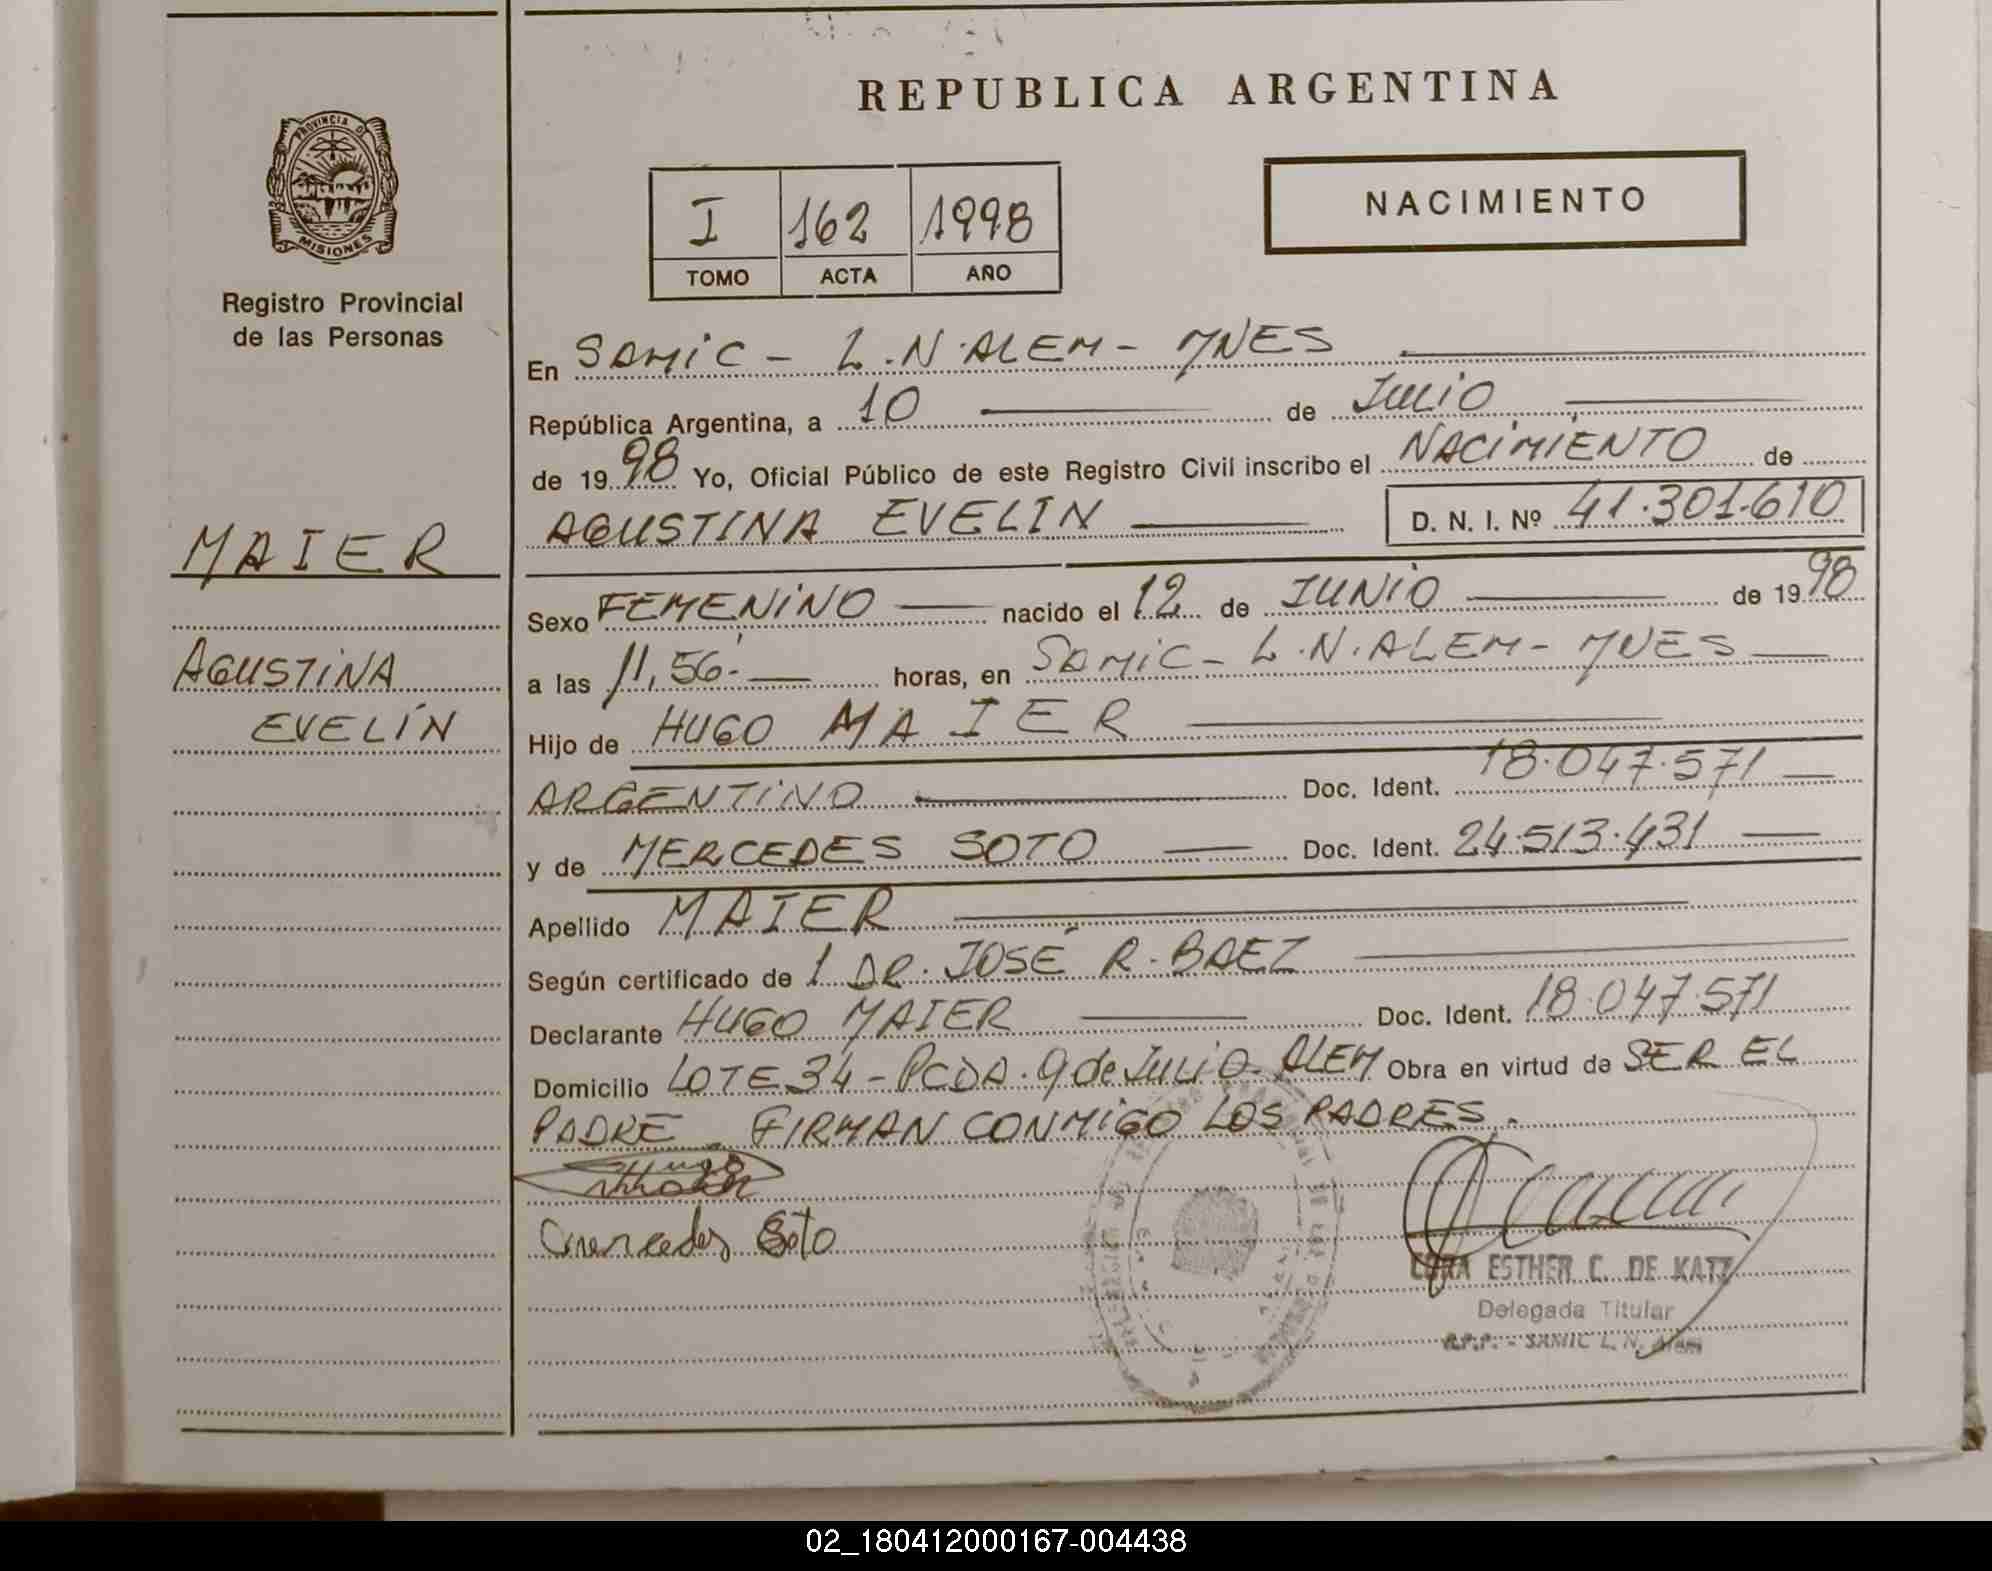 REPUBLICA ARGENTINA
PROVINCIA D
MISIONES
Registro Provincial
de las Personas
I 162 1998
TOMO ACTA AÑO
NACIMIENTO
En SAMIC - L.N.ALEM - MNES
República Argentina, a 10 de JULIO
de 1998 Yo, Oficial Público de este Registro Civil inscribo el NACIMIENTO de
AGUSTINA EVELIN D. N. I. Nº 41.301.610
MAIER
AGUSTINA
EVELÍN
Sexo FEMENINO nacido el 12 de JUNIO de 1998
a las 11,56- horas, en SAMIC - L.N.ALEM - MNES
Hijo de HUGO MAIER
ARGENTINO Doc. Ident. 18.047.571
y de MERCEDES SOTO Doc. Ident. 24.513.431
Apellido MAIER
Según certificado de 1 DR. JOSÉ R. BAEZ
Declarante HUGO MAIER Doc. Ident. 18.047.571
Domicilio LOTE 34 - PCDA. 9 de JULIO. ALEM Obra en virtud de SER EL
PADRE. FIRMAN CONMIGO LOS PADRES.
Hugo
Mercedes Soto
ESTHER C. DE KATZ
Delegada Titular
R.P.P. - SAMIC L. N. Alem
02_180412000167-004438